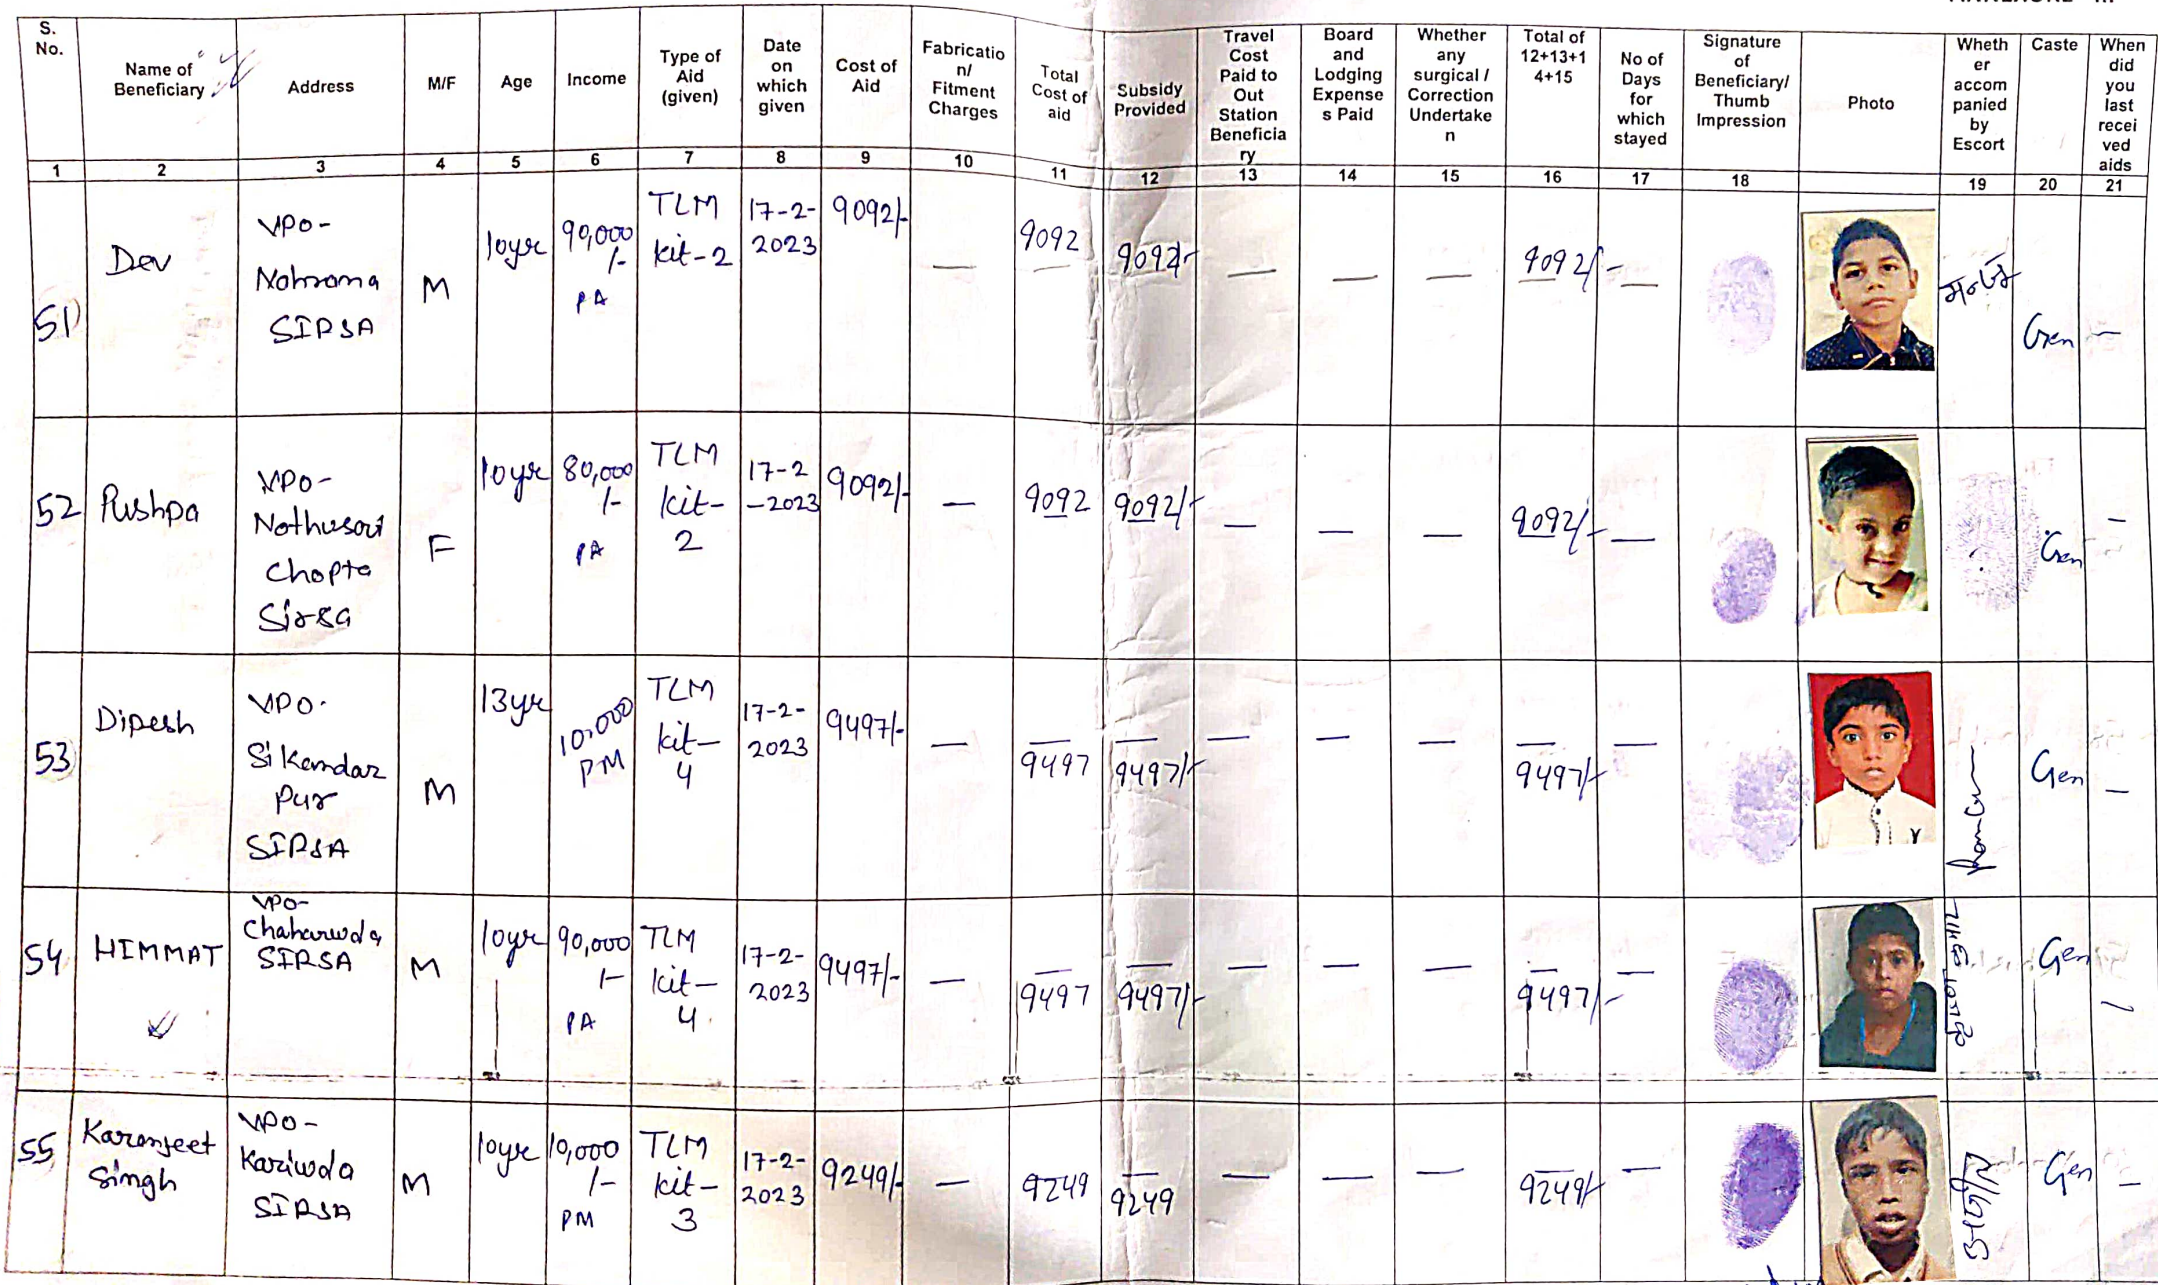 S. No.
Name of Beneficiary
Address
M/F
Age
Income
Type of Aid (given)
Date on which given
Cost of Aid
Fabricatio n/ Fitment Charges
Total Cost of aid
Subsidy Provided
Travel Cost Paid to Out Station Beneficia ry
Board and Lodging Expense s Paid
Whether any surgical / Correction Undertake n
Total of 12+13+1 4+15
No of Days for which stayed
Signature of Beneficiary/ Thumb Impression
Photo
Wheth er accom panied by Escort
Caste
When did you last recei ved aids
1 2 3 4 5 6 7 8 9 10 11 12 13 14 15 16 17 18 19 20 21
51 Dev VPO- SIRSA M 10yr 90,000 /- PA TLM kit-2 17-2-2023 9092/- — 9092 9092/- — — — 9092/- — Gen —
52 Pushpa VPO- Nathusari Chopta Sirsa F 10yr 80,000 /- PA TLM kit-2 17-2-2023 9092/- — 9092 9092/- — — — 9092/- — Gen —
53 Dipesh VPO. Sikandar Pur SIRSA M 13yr 10,000 PM TLM kit-4 17-2-2023 9497/- — 9497 9497/- — — — 9497/- — Gen —
54 HIMMAT VPO- SIRSA M 10yr 90,000 /- PA TLM kit-4 17-2-2023 9497/- — 9497 9497/- — — — 9497/- — Gen —
55 Karanjeet Singh VPO- SIRSA M 10yr 10,000 /- PM TLM kit-3 17-2-2023 9249/- — 9249 9249 — — — 9249/- — Gen —